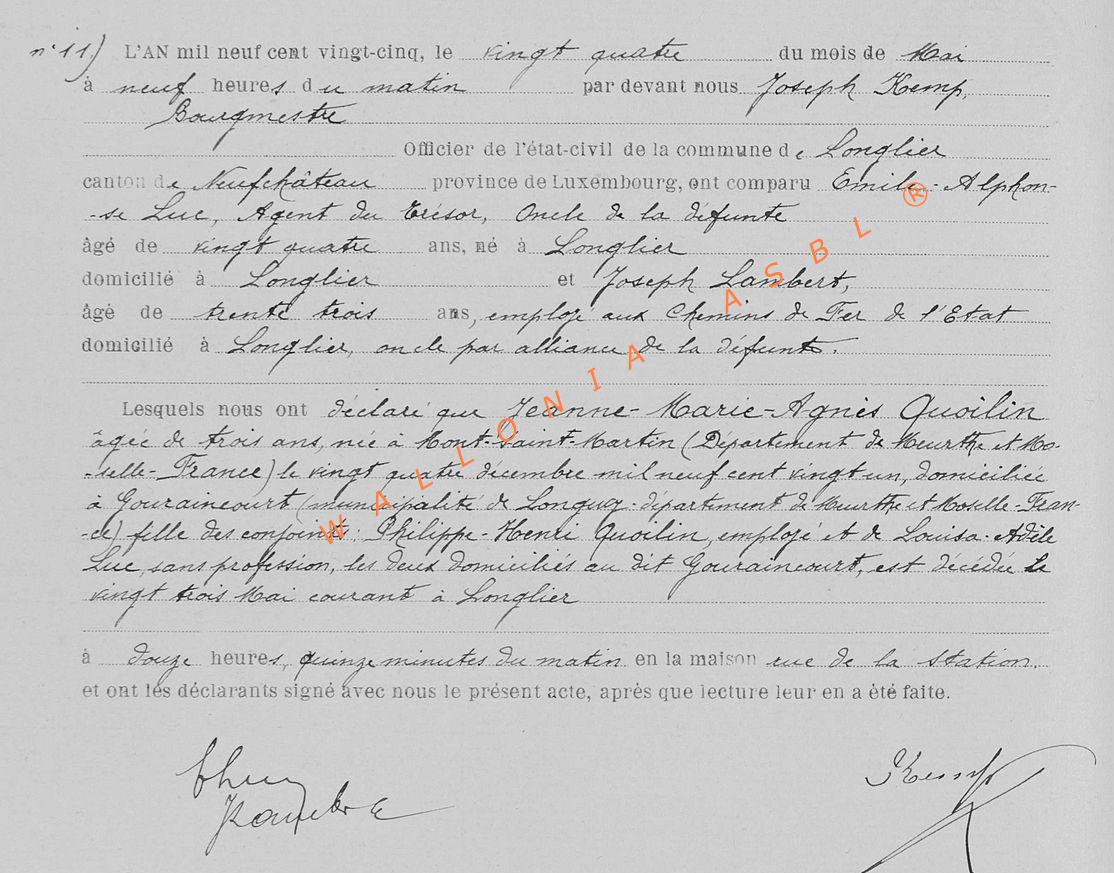 n° 11) L'AN mil neuf cent vingt-cinq, le vingt quatre du mois de Mai
à neuf heures du matin par devant nous Joseph Kemp,
Bourgmestre
Officier de l'état-civil de la commune de Longlier
canton de Neufchâteau province de Luxembourg, ont comparu Emile-Alphon-
-se Luc, Agent du Trésor, Oncle de la défunte
âgé de vingt quatre ans, né à Longlier
domicilié à Longlier et Joseph Lambert,
âgé de trente trois ans, employé aux Chemins de Fer de l'Etat
domicilié à Longlier, oncle par alliance de la défunte.
Lesquels nous ont déclaré que Jeanne-Marie-Agnès Quoilin
âgée de trois ans, née à Mont-Saint-Martin (Département de Meurthe et Mo-
-selle-France) le vingt quatre décembre mil neuf cent vingt un, domiciliée
à Gouraincourt (municipalité de Longwy-département de Meurthe et Moselle-Fran-
-ce) fille des conjoints: Philippe-Henri Quoilin, employé et de Louisa-Adèle
Luc, sans profession, les deux domiciliés au dit Gouraincourt, est décédée le
vingt trois Mai courant à Longlier
à douze heures, quinze minutes du matin en la maison rue de la Station.
et ont les déclarants signé avec nous le présent acte, après que lecture leur en a été faite.
Kemp
WALLONIA ASBL ®